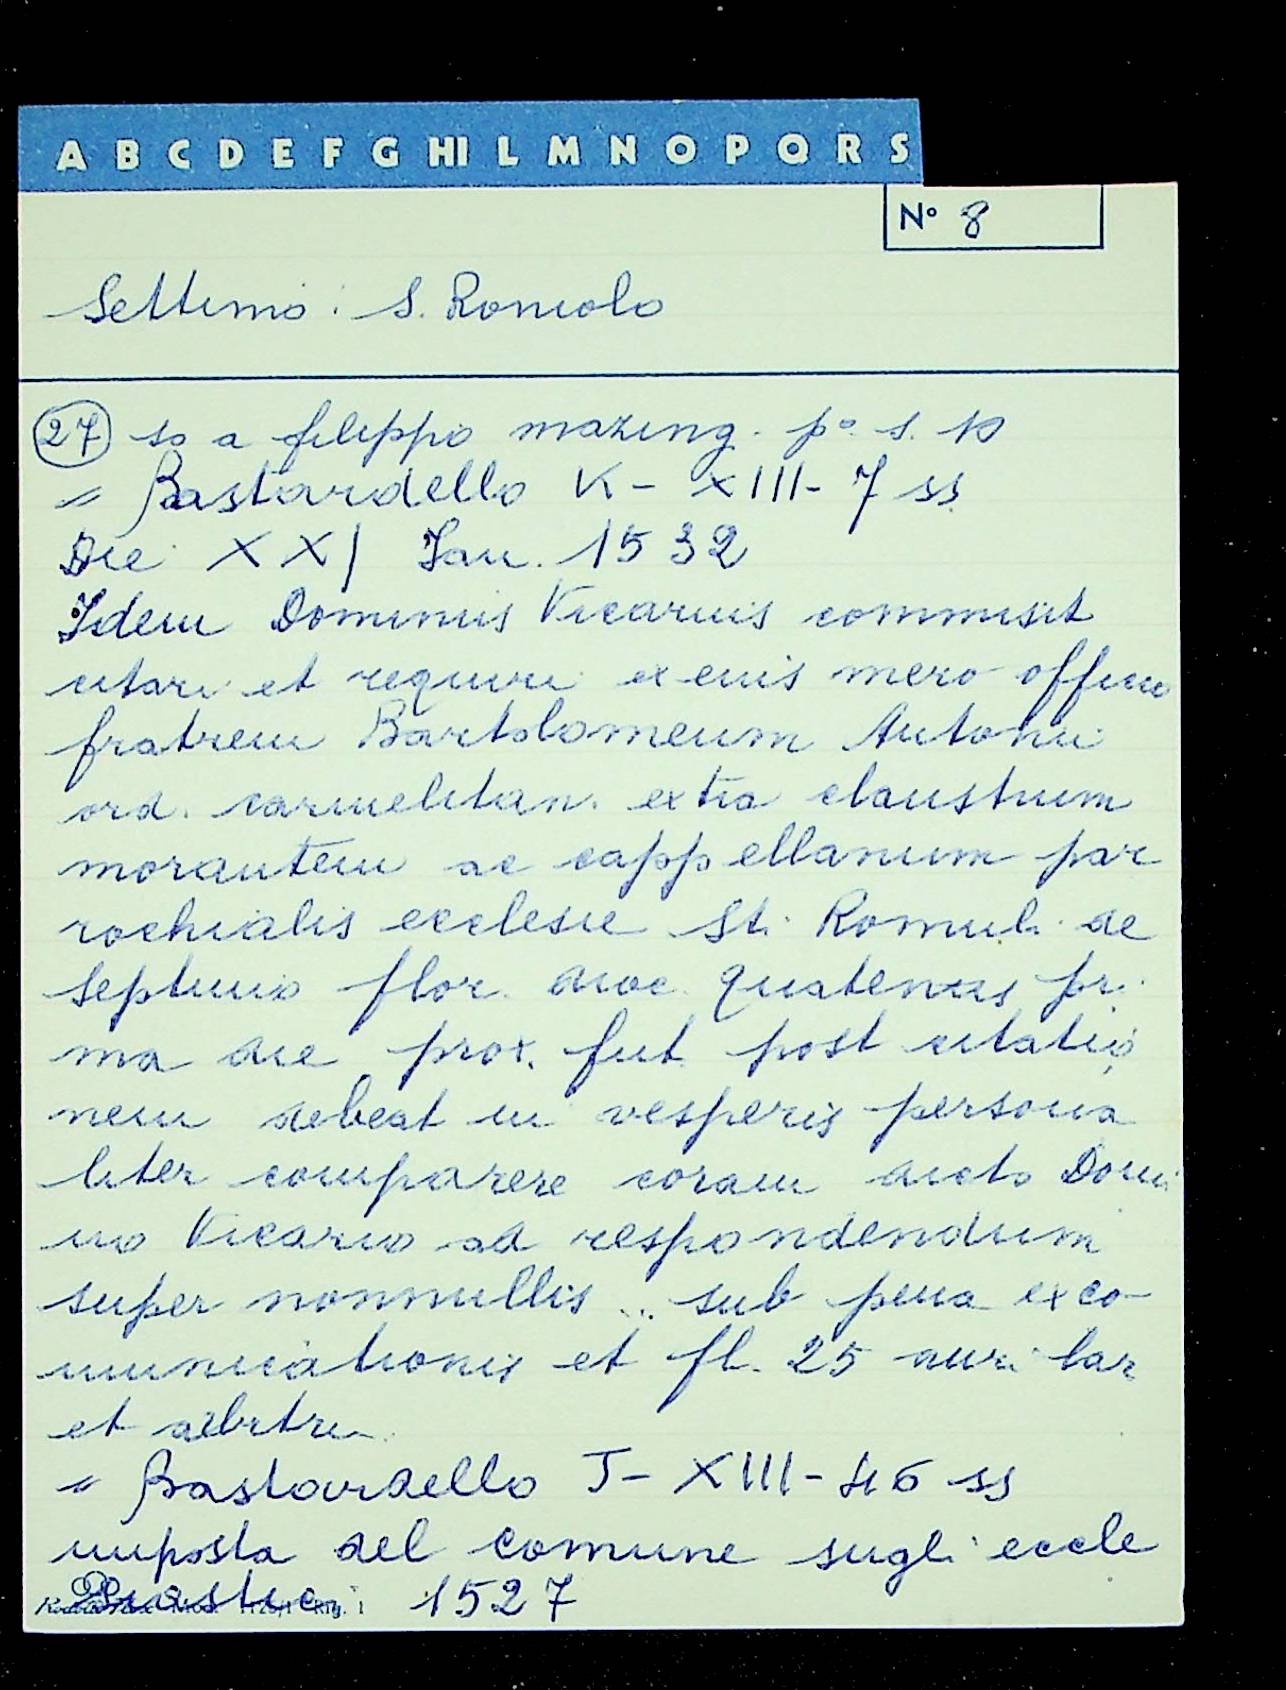 A B C D E F G HI L M N O P Q R S
N° 8
Settimo: S. Romolo
27 so a filippo mazing. p° s. 10
" Bastardello K - XIII - 7 ss
Die XXI Jan. 1532
Idem Dominus Vicarius commisit
citari et requiri ex eius mero officio
fratrem Bartolomeum Antonii
ord. carmelitan. extra claustrum
morantem ac cappellanum par
rochialis ecclesie Sti Romuli de
Septimo flor. dioc. quatenus pri
ma die prox. fut. post citatio
nem debeat in vesperis persona
liter comparere coram dicto Domi
no Vicario ad respondendum
super nonnullis .. sub pena exco-
municationis et fl. 25 auri lar
et arbitrii
" Bastardello J - XIII - 46 ss
imposta del comune sugli eccle
siastici 1527